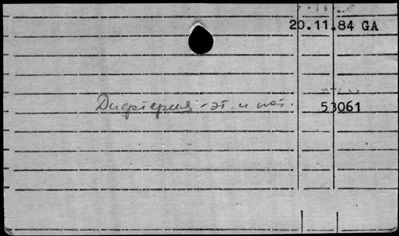 20.11.84 GA
Дифтерия - эт. и пат. 53061